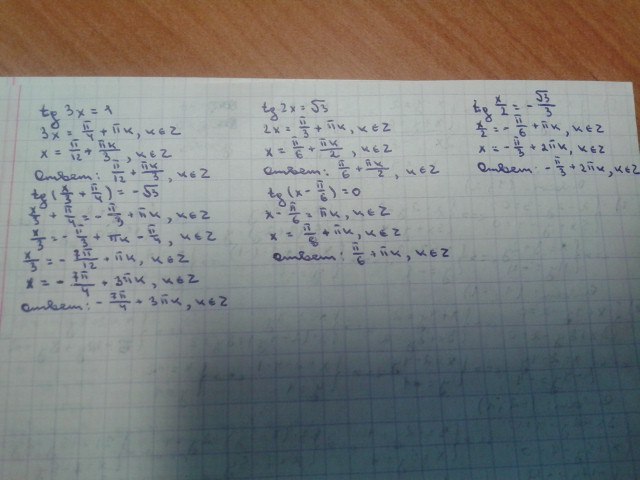 tg 3x = 1
3x = π/4 + πк, к∈Z
x = π/12 + πк/3, к∈Z
Ответ: π/12 + πк/3, к∈Z
tg(x/3 + π/4) = -√3
x/3 + π/4 = -π/3 + πк, к∈Z
x/3 = -π/3 + πк - π/4, к∈Z
x/3 = -7π/12 + πк, к∈Z
x = -7π/4 + 3πк, к∈Z
Ответ: -7π/4 + 3πк, к∈Z
tg 2x = √3
2x = π/3 + πк, к∈Z
x = π/6 + πк/2, к∈Z
Ответ: π/6 + πк/2, к∈Z
tg(x - π/6) = 0
x - π/6 = πк, к∈Z
x = π/6 + πк, к∈Z
Ответ: π/6 + πк, к∈Z
tg x/2 = -√3/3
x/2 = -π/6 + πк, к∈Z
x = -π/3 + 2πк, к∈Z
Ответ: -π/3 + 2πк, к∈Z